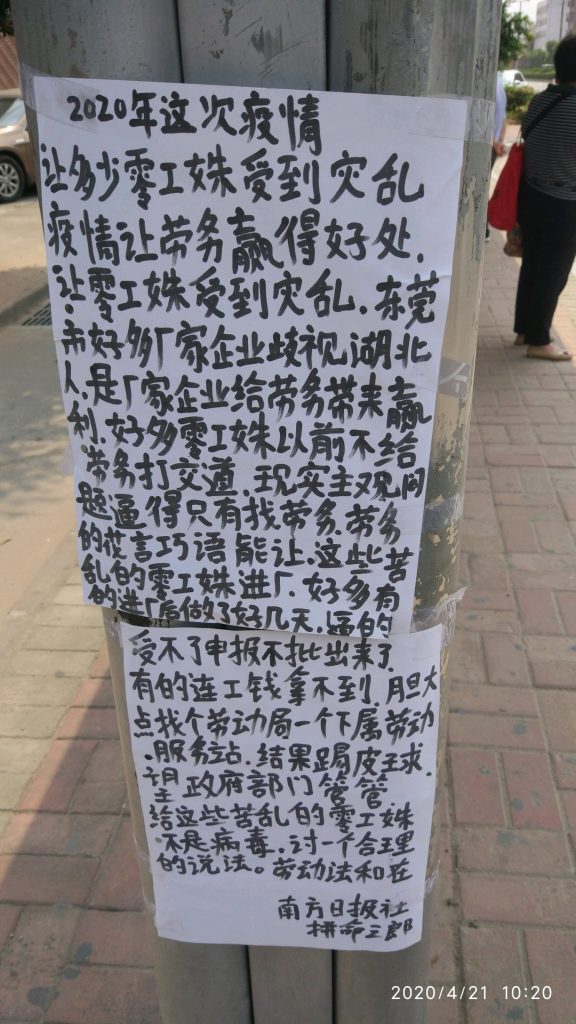 2020年这次疫情
让多少零工姝受到灾乱
疫情让劳务赢得好处.
让零工姝受到灾乱.东莞
市好多厂家企业歧视湖北
人是厂家企业给劳务带来赢
利.好多零工姝以前不给
劳务打交道.现实主观问
题逼得只有找劳务.劳务
的花言巧语能让.这些苦
乱的零工姝进厂.好多有
的进厂后做了好几天.逼的
受不了申报不批出来了
有的连工钱拿不到.胆大
点找个劳动局一个下属劳动
.服务站.结果踢皮球.
望政府部门管管
给这些苦乱的零工姝
不是病毒.讨一个合理
的说法。劳动法和在
南方日报社
拼命三郎
2020/4/21 10:20